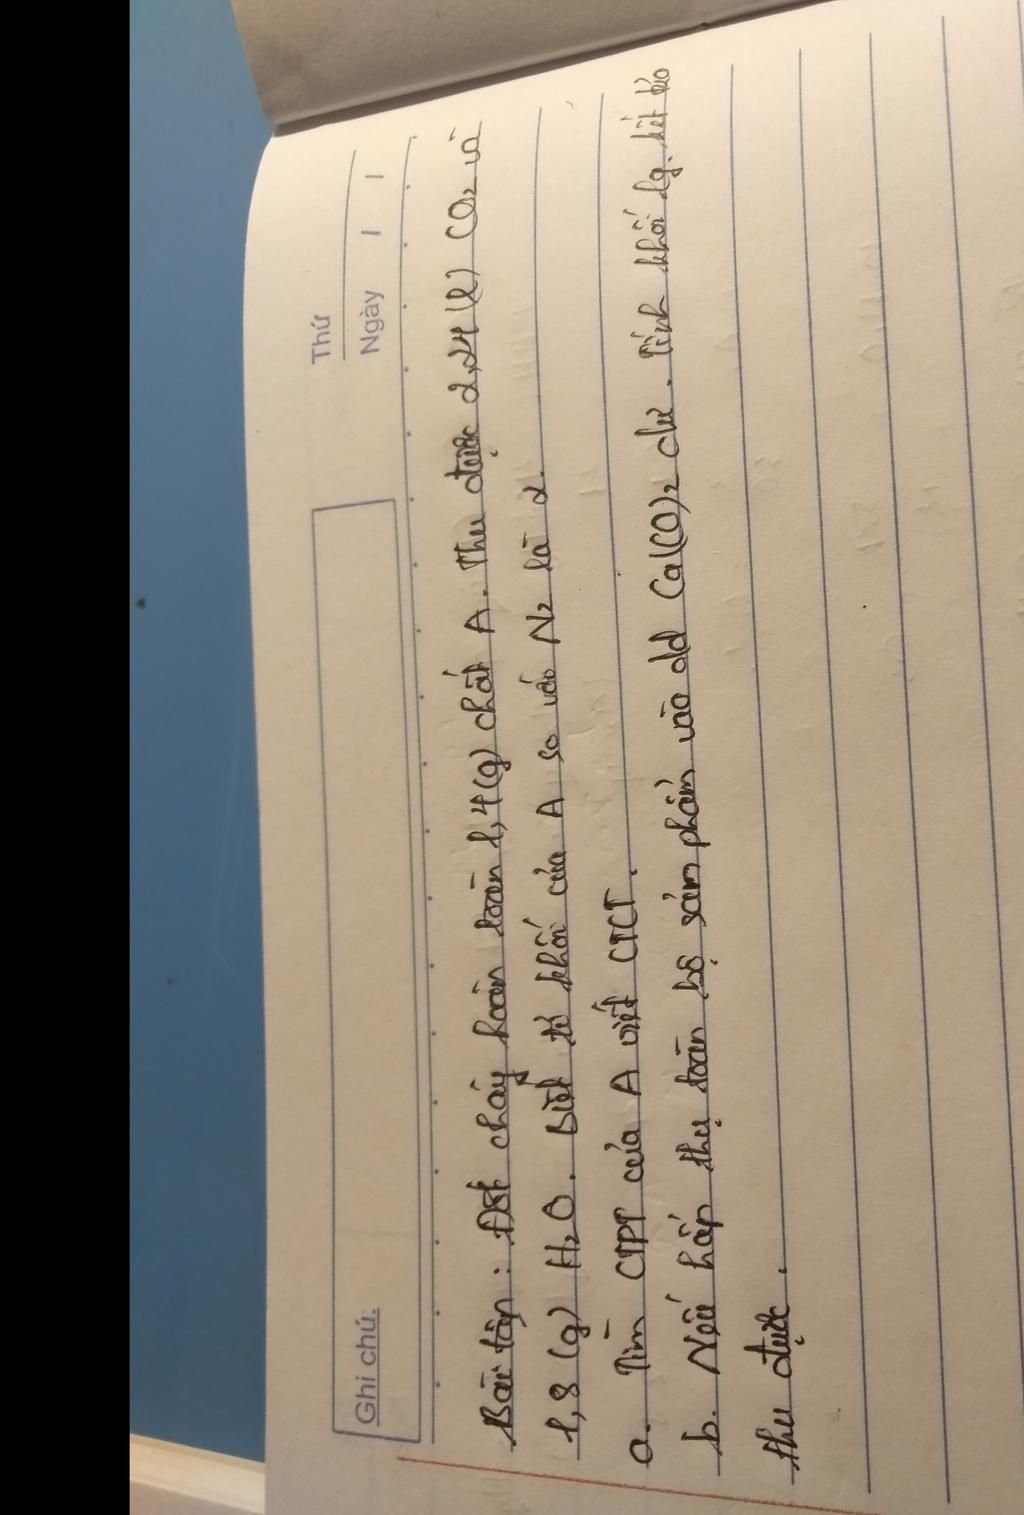 Ghi chú:
Thứ
Ngày / /
Bài tập: Đốt cháy hoàn toàn 1,4(g) chất A. Thu được 2,24 (l) CO₂ và
1,8 (g) H₂O. Biết tỉ khối của A so với N₂ là 2.
a. Tìm CTPT của A viết CTCT.
b. Nếu hấp thụ toàn bộ sản phẩm vào dd Ca(CO)₂ dư. Tính khối lg kết tủa
thu được.